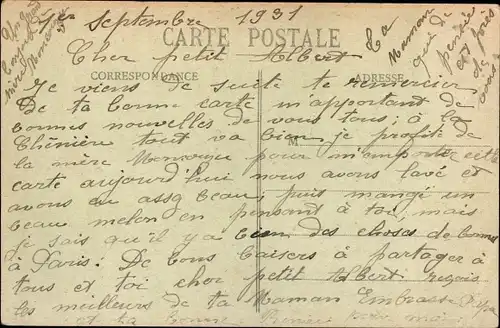 1er Septembre 1931
CARTE POSTALE
Cher petit Albert
CORRESPONDANCE ADRESSE
Je viens de suite te remercier
De ta bonne carte m'apportant de
bonnes nouvelles de vous tous; à la
Chênière tout va bien je profite de
la mère pour m'emporter cette
carte aujourd'hui nous avons lavé et
avons eu assez beau; puis mangé un
beau melon en pensant à toi, mais
je sais qu'il y a bien des choses de bonnes
à Paris: De bons baisers à partager à
tous et toi cher petit Albert reçois
les meilleurs de ta Maman Embrasse
et ta bonne
Ta
Maman
qui
pensée
est
près
de
vous